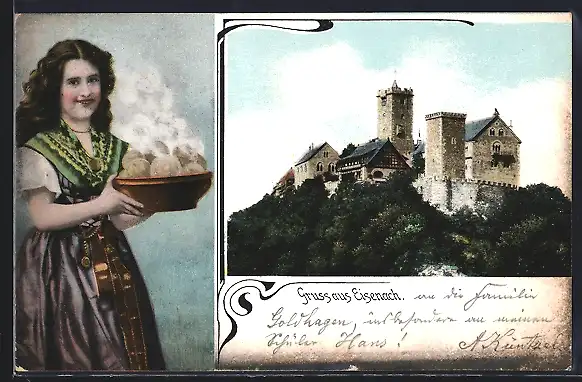 Gruss aus Eisenach. an die Familie
Goldhagen, insbesondere an meinen
Schüler Hans!
A. Küntzel